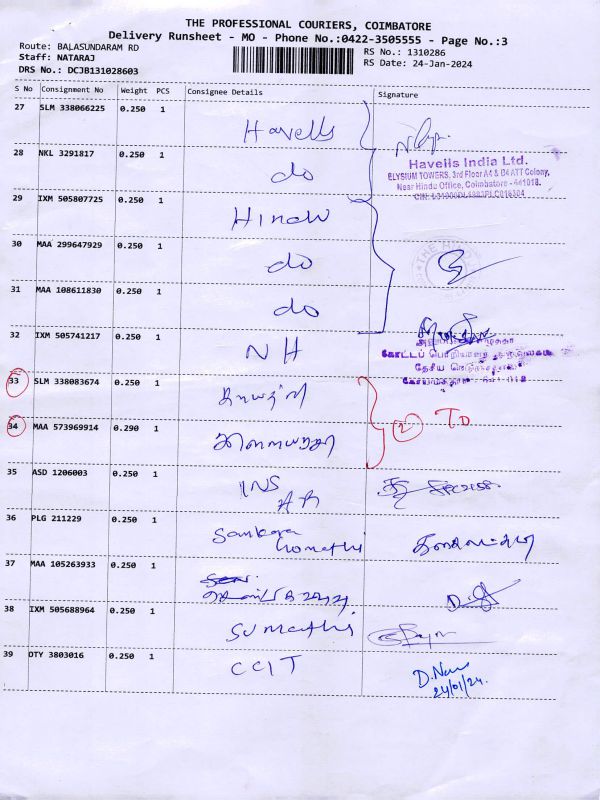 THE PROFESSIONAL COURIERS, COIMBATORE
Delivery Runsheet - MO - Phone No.:0422-3505555 - Page No.:3
Route: BALASUNDARAM RD
RS No.: 1310286
Staff: NATARAJ
RS Date: 24-Jan-2024
DRS No.: DCJB131028603
S No Consignment No Weight PCS Consignee Details Signature
27 SLM 338066225 0.250 1 Havells
Havells India Ltd.
ELYSIUM TOWERS, 3rd Floor A4 & B4 ATT Colony,
Near Hindu Office, Coimbatore - 641018.
28 NKL 3291817 0.250 1 do
29 IXM 505807725 0.250 1 Hindu
30 MAA 299647929 0.250 1 do
THE HINDU
31 MAA 108611830 0.250 1 do
32 IXM 505741217 0.250 1 NH
கோட்டப் பொறியாளர்
தேசிய
33 SLM 338083674 0.250 1 காயத்ரி
2 TD
34 MAA 573969914 0.290 1
35 ASD 1206003 0.250 1 INS
AR
36 PLG 211229 0.250 1 Sankara
Gomathi
37 MAA 105263933 0.250 1
38 IXM 505688964 0.250 1 Sumathi
39 DTY 3803016 0.250 1 CCIT
24/01/24.